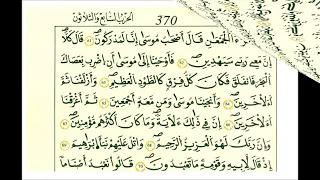 الحزب السابع والثلاثون
370
اَ۬لْجَمْعَٰنِ قَالَ أَصْحَٰبُ مُوسَىٰٓ إِنَّا لَمُدْرَكُونَ قَالَ كَلَّآ
إِنَّ مَعِے رَبِّے سَيَهْدِينِ فَأَوْحَيْنَآ إِلَىٰ مُوسَىٰٓ أَنِ اِضْرِب بِّعَصَاكَ
اَ۬لْبَحْرَ فَانفَلَقَ فَكَانَ كُلُّ فِرْقٍ كَالطَّوْدِ اِ۬لْعَظِيمِ وَأَزْلَفْنَا ثَمَّ
اَ۬لَاخَرِينَ وَأَنجَيْنَا مُوسَىٰ وَمَن مَّعَهُۥٓ أَجْمَعِينَ ثُمَّ أَغْرَقْنَا
اَ۬لَاخَرِينَ إِنَّ فِے ذَٰلِكَ لَأٓيَةٗ وَمَا كَانَ أَكْثَرُهُم مُّؤْمِنِينَ
وَإِنَّ رَبَّكَ لَهُوَ اَ۬لْعَزِيزُ اُ۬لرَّحِيمُ وَاتْلُ عَلَيْهِمْ نَبَأَ اِبْرَٰهِيمَ
إِذْ قَالَ لِأَبِيهِ وَقَوْمِهِۦ مَا تَعْبُدُونَ قَالُواْ نَعْبُدُ أَصْنَاماٗ